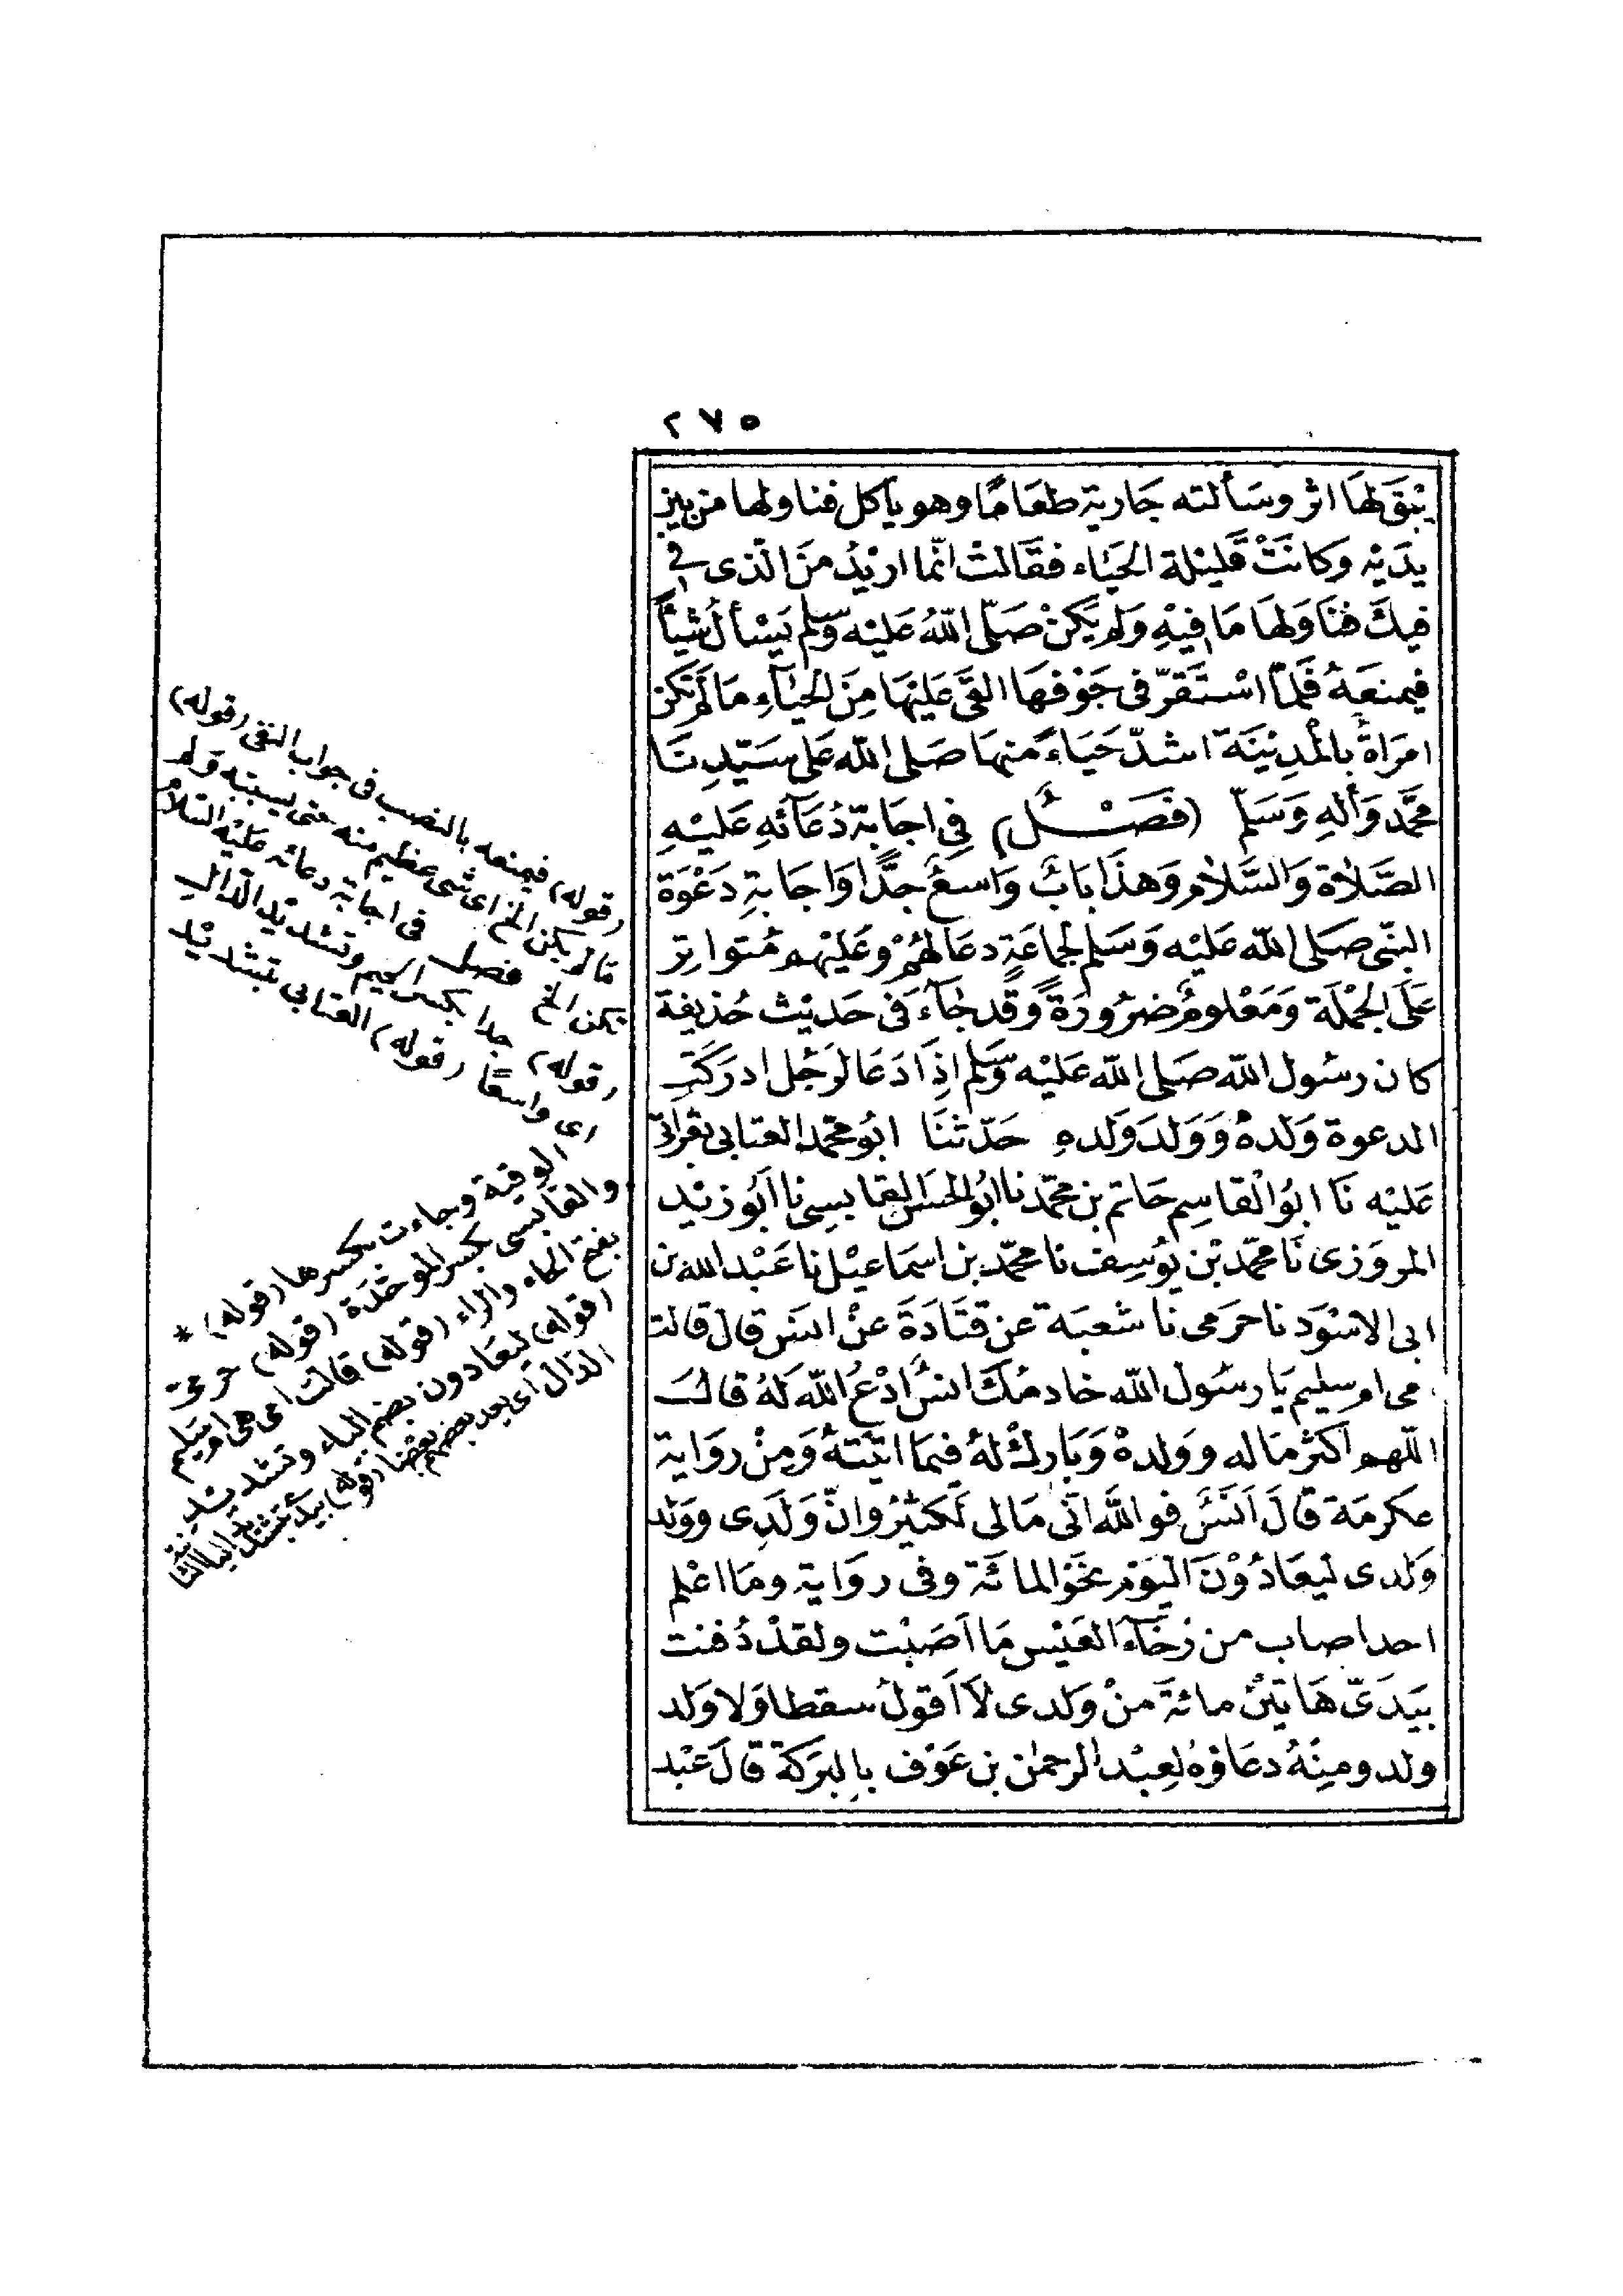 ٢٧٥
يَبْقَ لهَا اثر وسَألته جَارية طعَامًا وهو يأكل فناولها من بين
يدَيْه وكانَتْ قَليْلة الحيَاء فقَالتْ انّما اريْدُ منَ الّذى فى
فيكَ فنَاوَلهَا مَا فيْهِ وَلم يَكنْ صَلّى اللّهُ عَليْه وَسَلم يَسْألُ شيْأً
فيمنعَهُ فَلمّا اسْتَقرّ فى جَوْفهَا القىَ عَليْهَا مِنَ الحيَآءِ مَا لَمْ تَكن
امرَاةٌ بالْمدِيْنَة اشدّ حَيَاءً منهَا صَلى اللّه عَلى سَيّدِنَا
محمَّد وَألهِ وَسَلمّ (فَصَـْـل) فِى اجَابَةِ دُعَآئهِ عَليْهِ
الصَّلاة وَالسَّلام وَهذَا بَابٌ وَاسعٌ جدًّا وَاجَابةِ دَعْوَة
النبّى صَلى اللّه عَليْه وَسَلم لجمَاعَةٍ دعَا لهُمْ وعَليْهم مُتوَاتِر
عَلَى الجمْلَة وَمَعْلومٌ ضرُورَةً وَقَد جَآءَ فى حَديْث حُذيفة
كان رسُول اللّه صَلى اللّه عَليْه وَسَلم اذَا دَعَا لرَجُل ادرَكَتِ
الدعوة وَلدهُ وَوَلدَ وَلدهِ حَدّثنَا ابُو محمّد العتابى بقرَاتى
عَليْه نَا ابوُ الْقاسِم حَاتم بن محمّد نا ابُو الحسَن القابسِى نا اَبُو زيْد
المروَزى نَا محمّد بْن يُوسِف نا محمّد بن اسمَاعيْل نا عَبْد اللّه بن
ابى الاسْوَد نا حَرَمى نا شعبَة عن قتَادَةَ عنْ انسَ قال قالت
مى ام سليم يَا رسُول اللّه خادمُكَ انسٌ ادْعُ اللّه لَهُ قالَ
اللّهم اَكثر مَاله ووَلدهْ وَبَاركْ لهُ فيمَا اتيْتهُ وَمِنْ روَاية
عكرمَة قَالَ اَنَسٌ فو اللّه انّ مَالى لَكثيْر وَانّ وَلَدِى ووَلد
وَلدى ليُعَادُوْنَ اليَوْم نحْوَ المائَة وفى روَاية ومَا اعْلم
احدا صاب من رَخَآءِ العَيْش مَا اَصَبْت ولقدْ دُفنت
بيَدَىّ هَاتيْن مائَةَ منْ وَلدى لاَ اَقولُ سقطا وَلا وَلد
ولد ومنْهُ دعَاؤهُ لِعبْد الرحمٰن بن عَوْف بالبرَكَة قَالَ عَبْد
(قوله) فيمنعه بالنصب فى جواب النفى (قوله)
ما لم يكن الخ اى شىء عظيم منه حتى بسببه ولم
يكن الخ فصل فى اجابة دعائه عليْه السّلام
(قوله) جدا بكسر الجيم وتشديْد الدّال
اى واسعًا (قوله) العتابى بتشديْد
الوقية وجاءت بكسرها (قوله) *
والقابسى بكسر الموحّدة (قوله) حرمى
بفتح الحاء والراء (قوله) قالت امى هى ام سليم
(قوله) ليعَادون بضم الياء وتشديْد
الدّال اى يعد بعضهم بعْضا (قوله) بيدىّ بتشديْد اليا الثانية